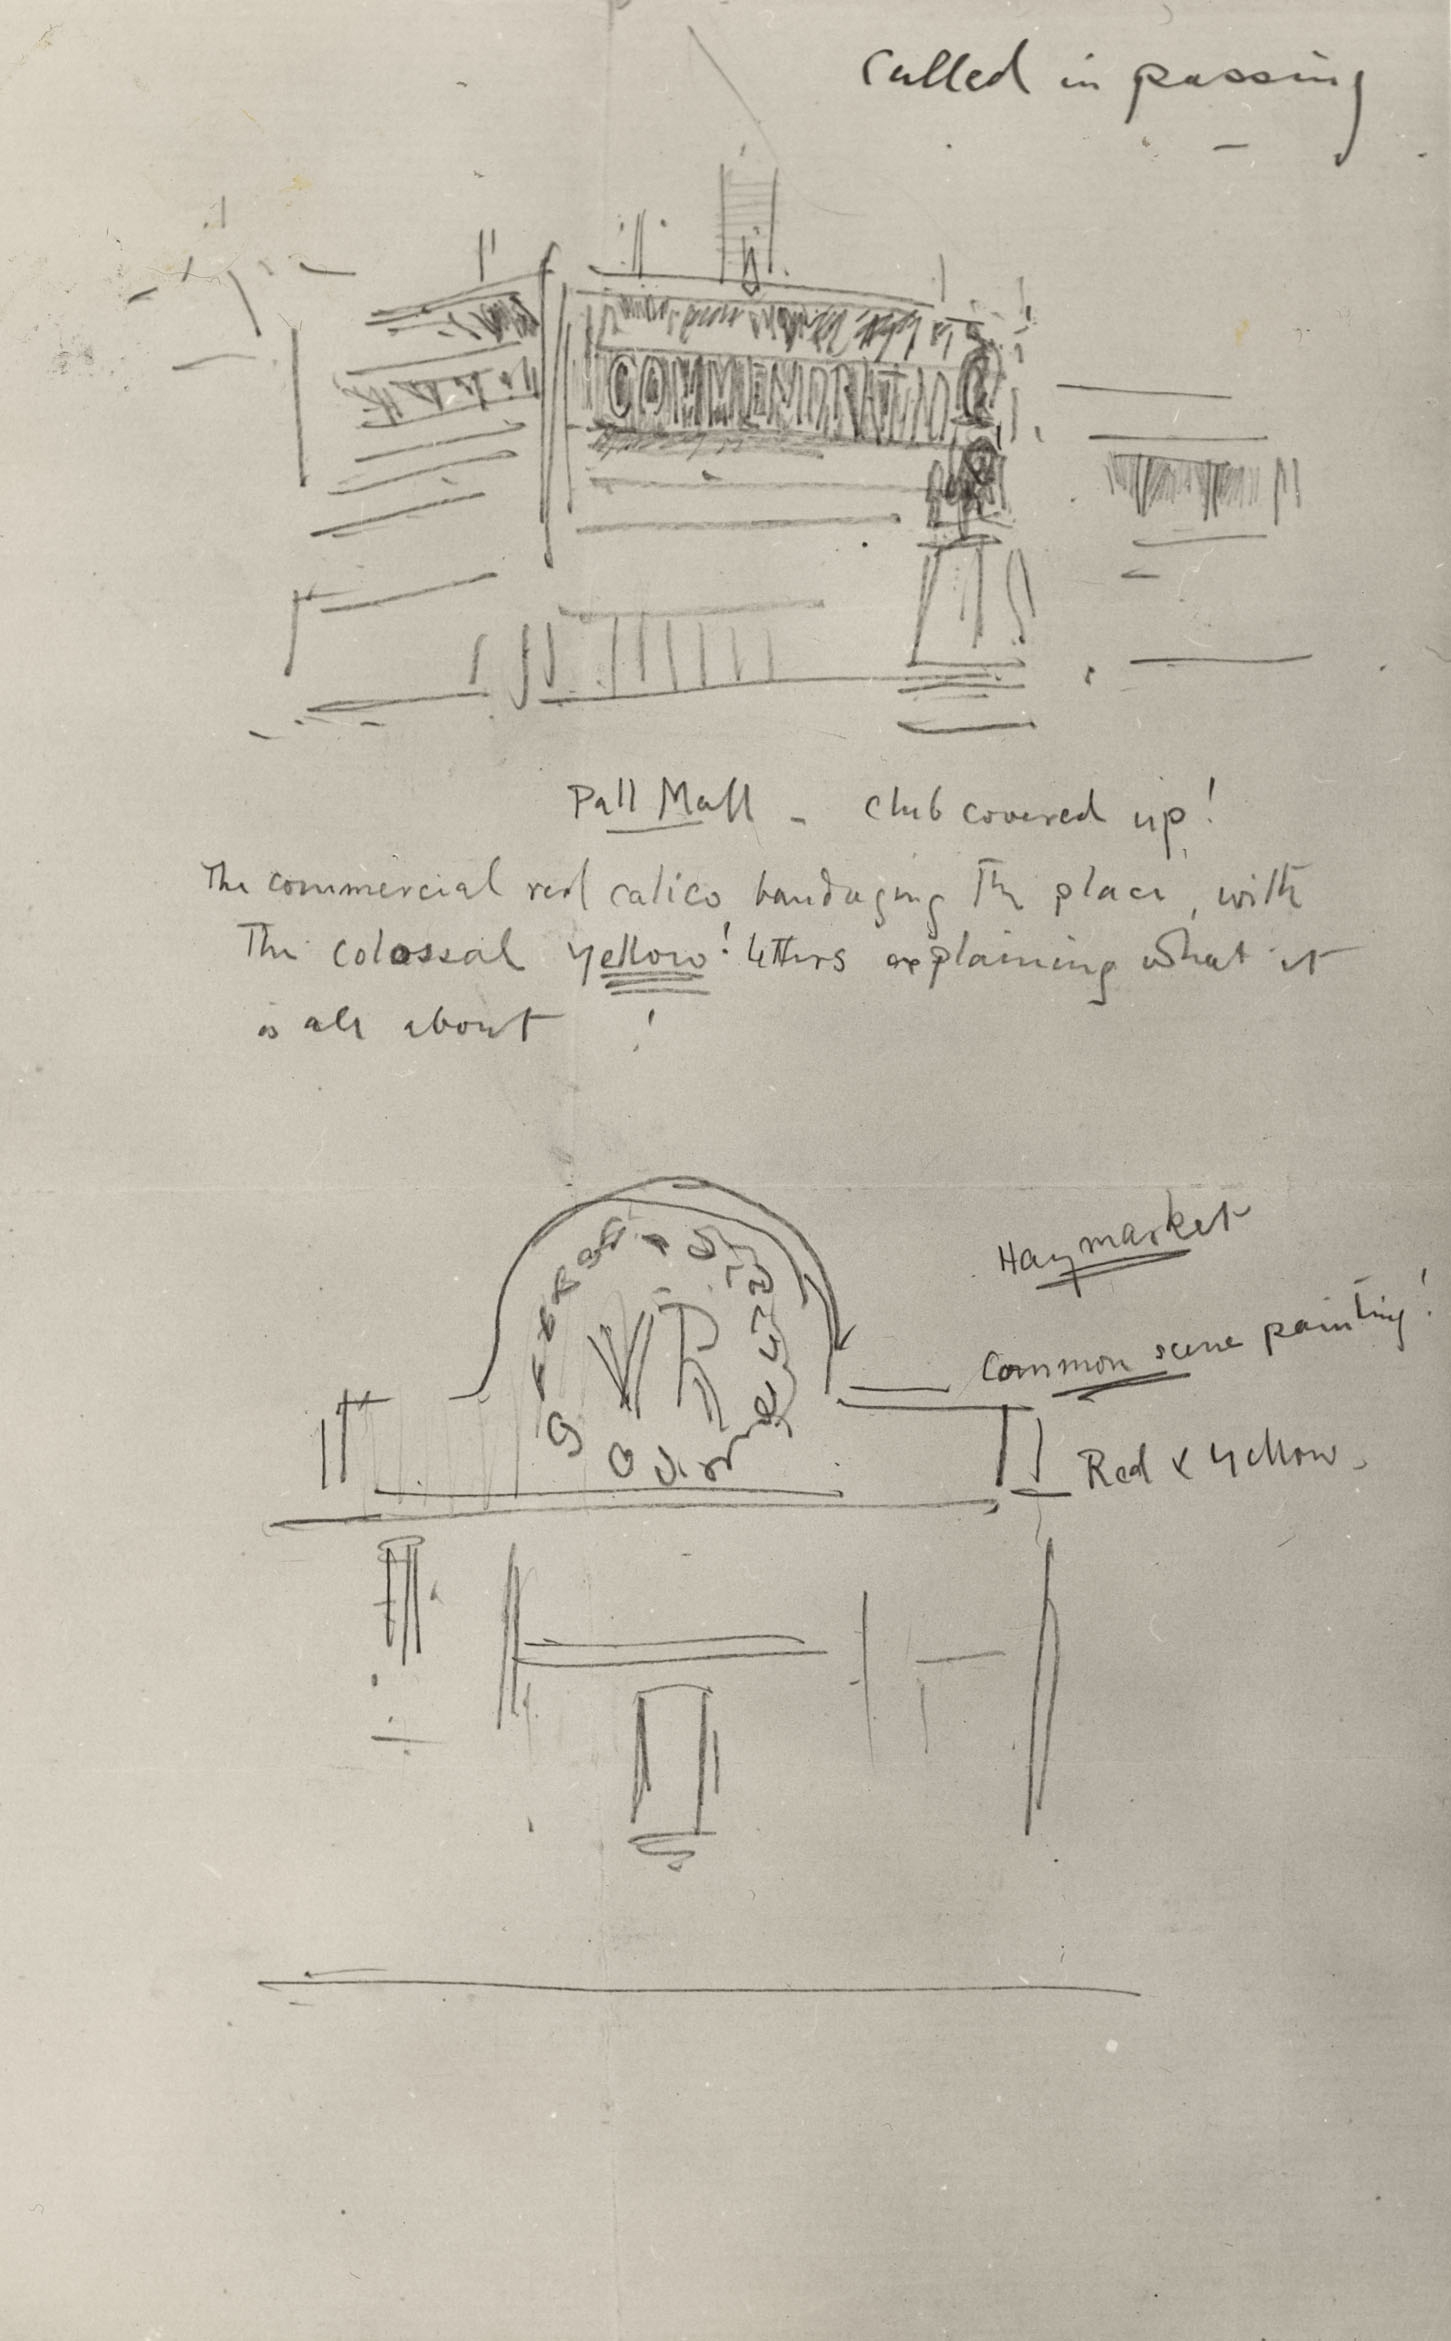 Called in passing
COMMEMORATING
Pall Mall - Club covered up!
The commercial red calico bandaging the place, with
The colossal yellow! letters explaining what it
is all about !
Haymarket
Common scene painting!
Red & Yellow.